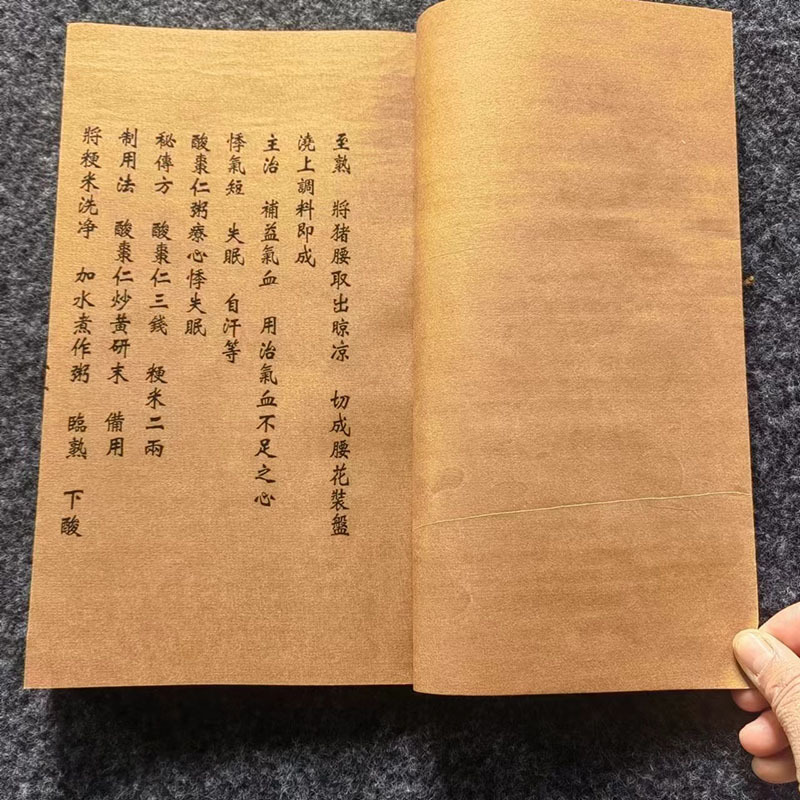 至熟　將猪腰取出晾凉　切成腰花裝盤
澆上調料即成
主治　補益氣血　用治氣血不足之心
悸氣短　失眠　自汗等
酸棗仁粥療心悸失眠
秘傳方　酸棗仁三錢　粳米二兩
制用法　酸棗仁炒黄研末　備用
將粳米洗净　加水煮作粥　臨熟　下酸